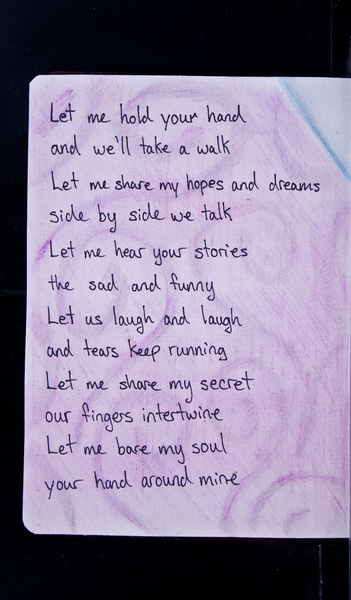 Let me hold your hand
and we'll take a walk
Let me share my hopes and dreams
side by side we talk
Let me hear your stories
the sad and funny
Let us laugh and laugh
and tears keep running
Let me share my secret
our fingers intertwine
Let me bare my soul
your hand around mine